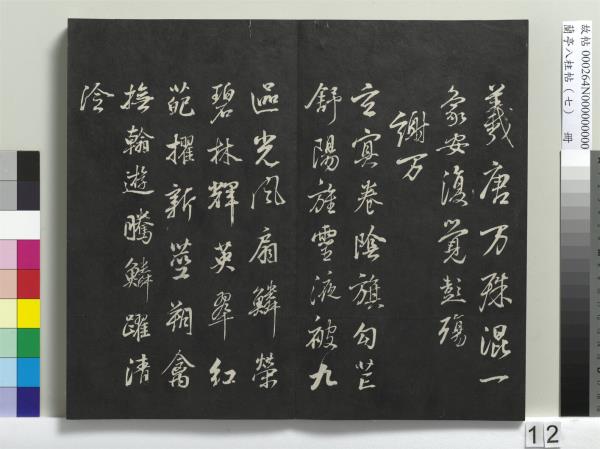 故帖 000264N000000000
蘭亭八柱帖（七） 冊
羲唐万殊混一
象安復覺彭殤
謝万
玄冥卷陰旗勾芒
舒陽旌靈液被九
區光風扇鱗榮
碧林輝英翠紅
葩擢新莖翔禽
撫翰遊騰鱗躍清
泠
12